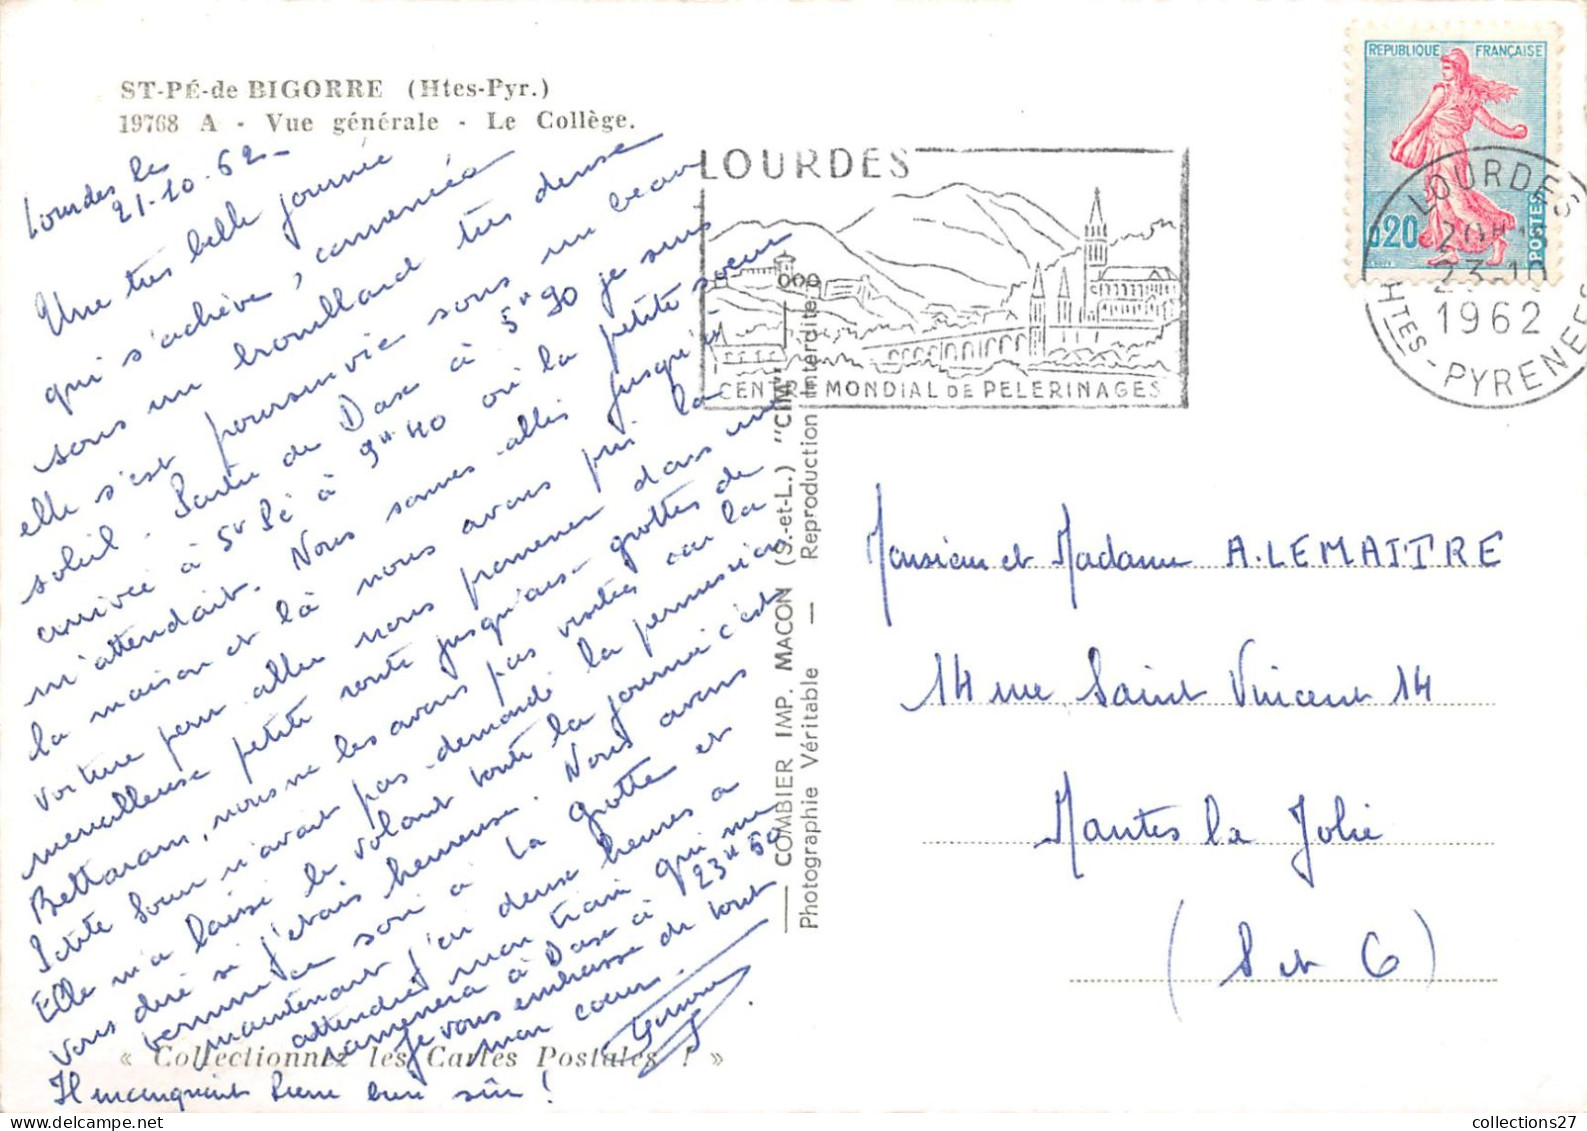 ST-PÉ-de BIGORRE (Htes-Pyr.)
19768 A - Vue générale - Le Collège.
Lourdes le
21-10-62-
Une très belle journée
qui s'achève, commencée
sous un brouillard très dense
elle s'est poursuivie sous un beau
soleil. Partie de Dax à 5H30 je suis
arrivée à St Pé à 9H40 où la petite soeur
m'attendait. Nous sommes allés jusqu'à
la maison et là nous avons pris la
voiture pour aller nous promener dans une
merveilleuse petite route jusqu'aux grottes de
Bettaram, nous ne les avons pas visitées car la
Petite Soeur n'avait pas demandé la permission
Elle m'a laissé le volant toute la journée c'est
vous dire si j'étais heureuse. Nous avons
terminé ce soir à la grotte et
maintenant j'ai deux heures à
attendre mon train qui me
ramènera à Dax à 23H50
Je vous embrasse de tout
mon coeur.
Il manquait Pierre bien sûr !
« Collectionnez les Cartes Postales ! »
COMBIER IMP. MACON (S.-et-L.) "CIM"
Photographie Véritable — Reproduction Interdite
LOURDES
CENTRE MONDIAL DE PELERINAGES
REPUBLIQUE FRANÇAISE
0,20
POSTES
LOURDES
23-10
1962
HTES-PYRENEES
Monsieur et Madame A. LEMAITRE
14 rue Saint Vincent 14
Mantes la Jolie
(S et O)
collections27